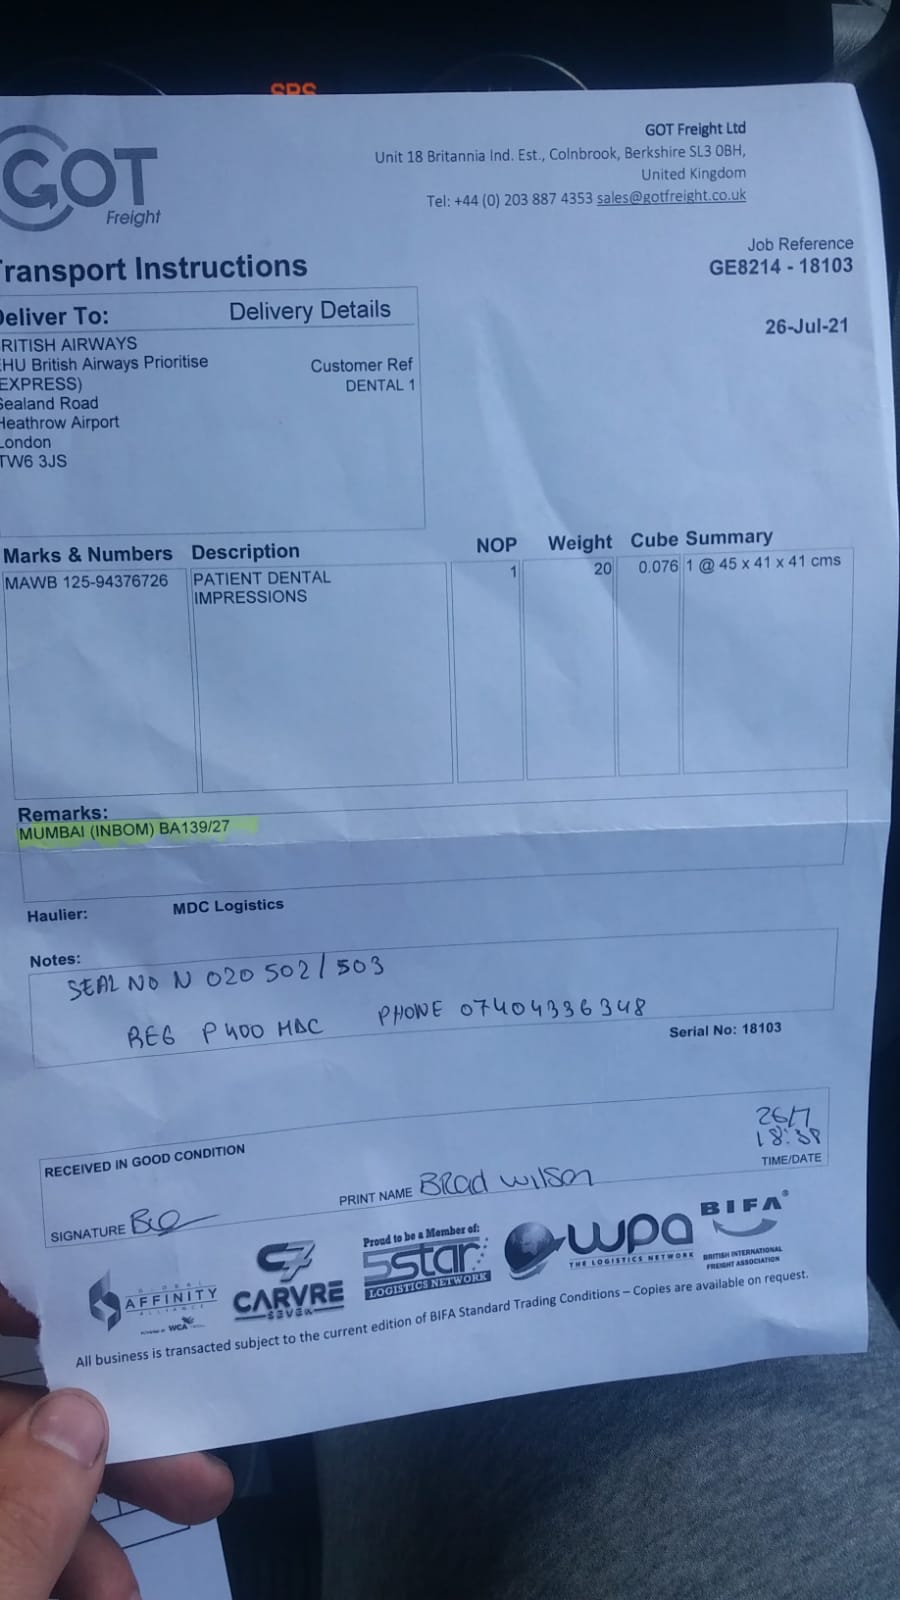 SRS
GOT
Freight
GOT Freight Ltd
Unit 18 Britannia Ind. Est., Colnbrook, Berkshire SL3 0BH,
United Kingdom
Tel: +44 (0) 203 887 4353 sales@gotfreight.co.uk
Job Reference
GE8214 - 18103
26-Jul-21
ransport Instructions
eliver To: Delivery Details
RITISH AIRWAYS
HU British Airways Prioritise
EXPRESS)
Sealand Road
Heathrow Airport
London
TW6 3JS
Customer Ref
DENTAL 1
Marks & Numbers Description NOP Weight Cube Summary
MAWB 125-94376726 PATIENT DENTAL 1 20 0.076 1 @ 45 x 41 x 41 cms
IMPRESSIONS
Remarks:
MUMBAI (INBOM) BA139/27
Haulier: MDC Logistics
Notes:
SEAL NO N 020 502/503
REG P400 MDC PHONE 07404336348
Serial No: 18103
RECEIVED IN GOOD CONDITION
26/7
18:38
TIME/DATE
SIGNATURE
PRINT NAME Brad Wilson
GLOBAL
AFFINITY
ALLIANCE
POWERED BY WCA
C7
CARVRE
SEVEN
Proud to be a Member of:
5star
LOGISTICS NETWORK
wpa
THE LOGISTICS NETWORK
BIFA
BRITISH INTERNATIONAL
FREIGHT ASSOCIATION
All business is transacted subject to the current edition of BIFA Standard Trading Conditions – Copies are available on request.